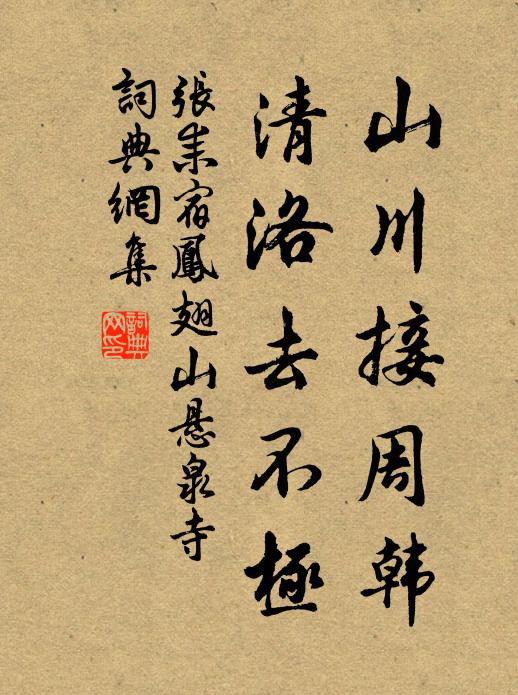 山川接周韩
清洛去不極
張耒宿鳳翅山悬泉寺
詞典網集
詞典网印